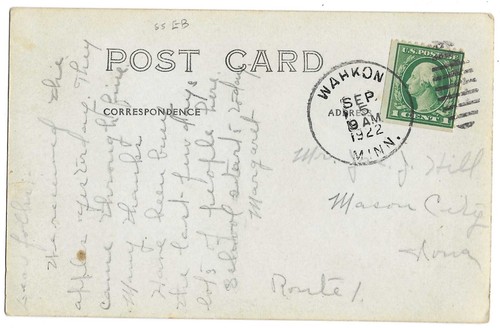 SS EB
POST CARD
CORRESPONDENCE
ADDRESS
WAHKON
SEP.
5
8 AM
1922
MINN.
U.S. POSTAGE
1 CENT 1
Dear folks:
We received the
apples yesterday. They
came through fine
Many thanks
Have been busy
the last few days
lots of people here.
School starts today
Margaret
J. Hill
Mason City
Iowa
Route 1.